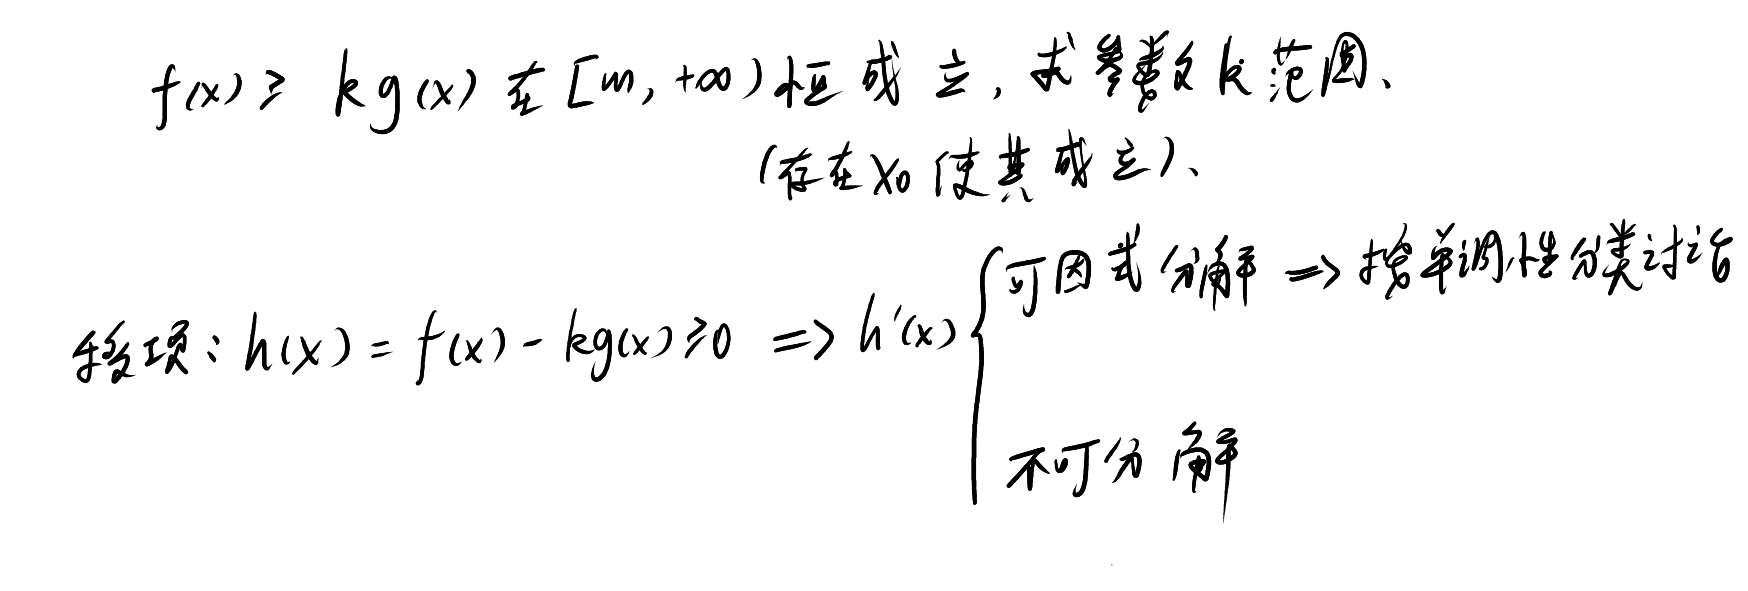 f(x) ≥ kg(x) 在 [m, +∞) 恒成立, 求参数k范围、
(存在x₀使其成立)、
可因式分解 => 按单调性分类讨论
移项: h(x) = f(x) - kg(x) ≥ 0 => h'(x) {
不可分解